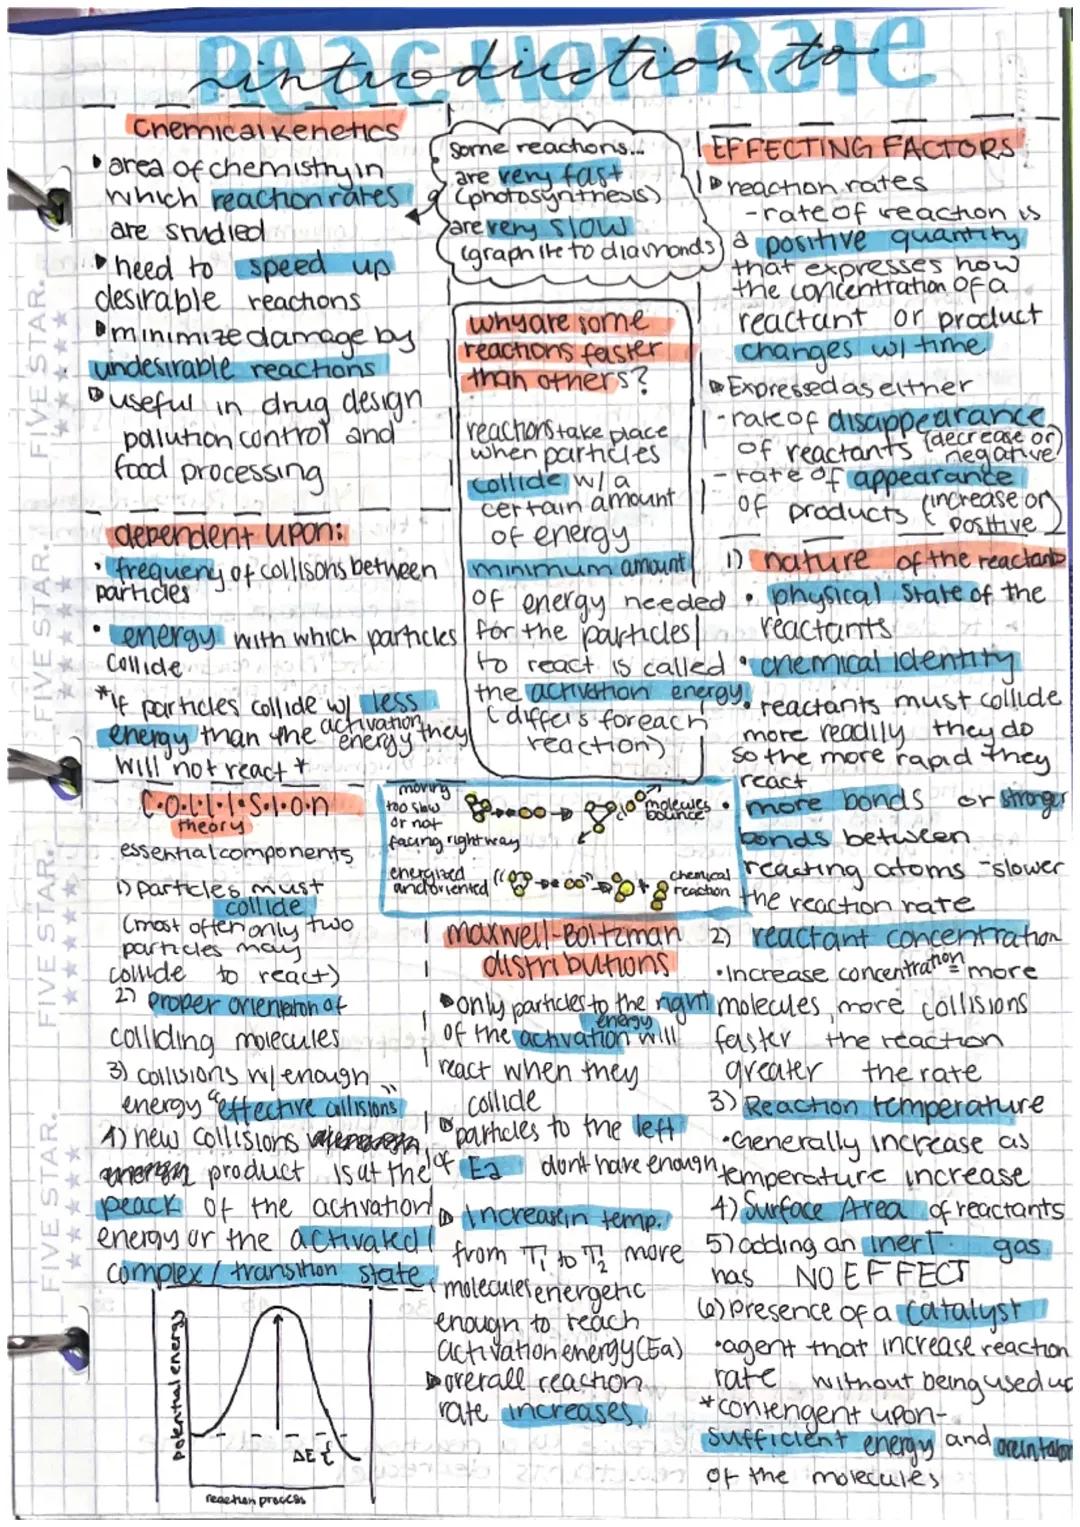 Reaction Rate
introduction to
Chemical Kenetics
area of chemistry in
which reaction rates
are studied
need to speed up
desirable reactions
minimize damage by
undesirable reactions
useful in drug design
pollution control and
food processing
dependent upon:
• frequeny of collisons between
particles
• energy with which particles
collide
*If particles collide w/ less
energy than the activation
energy they
will not react*
C•O•L•L•I•S•I•O•N
theory
essential components
1) particles must
collide
(most often only two
particles may
collide to react)
2) proper orientation of
colliding molecules
3) collisions w/ enough
energy "effective collisions"
4) new collisions
product is at the
peack of the activation
energy or the activated
complex / transition state
potential energy
ΔE {
reaction process
some reactions...
are very fast
(photosynthesis)
are very slow
(graphite to diamonds)
why are some
reactions faster
than others?
reactions take place
when particles
collide w/ a
certain amount
of energy
minimum amount
of energy needed
for the particles
to react is called
the activation energy
(differs foreach
reaction)
moving
too slow
or not
facing right way
molecules
bounce
energized
and oriented
chemical
reaction
maxwell-Boltzman
distributions
only particles to the right
of the activation energy will
react when they
collide
particles to the left
of Ea dont have enough
increase in temp.
from T1 to T2 more
molecules energetic
enough to reach
activation energy (Ea)
overall reaction
rate increases
EFFECTING FACTORS
reaction rates
- rate of reaction is
a positive quantity
that expresses how
the concentration of a
reactant or product
changes w/ time
Expressed as either
- rate of disappearance
of reactants (decrease or
negative)
- rate of appearance
of products (increase or
positive)
1) nature of the reactants
• physical state of the
reactants
• chemical identity
• reactants must collide
more readily they do
so the more rapid they
react
• more bonds or stronger
bonds between
reacting atoms - slower
the reaction rate
2) reactant concentration
• Increase concentration = more
molecules, more collisions
faster the reaction
greater the rate
3) Reaction temperature
• Generally increase as
temperature increase
4) Surface Area of reactants
5) adding an inert gas
has NO EFFECT
6) presence of a catalyst
• agent that increase reaction
rate without being used up
*contengent upon-
sufficient energy and
of the molecules
FIVE STAR.
FIVE STAR.
FIVE STAR.
FIVE STAR.
FIVE STAR.